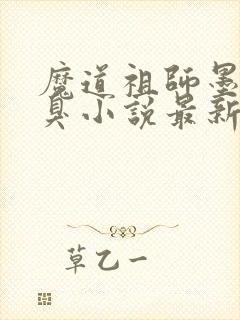 魔道祖師墨
臭小說最新
草乙一